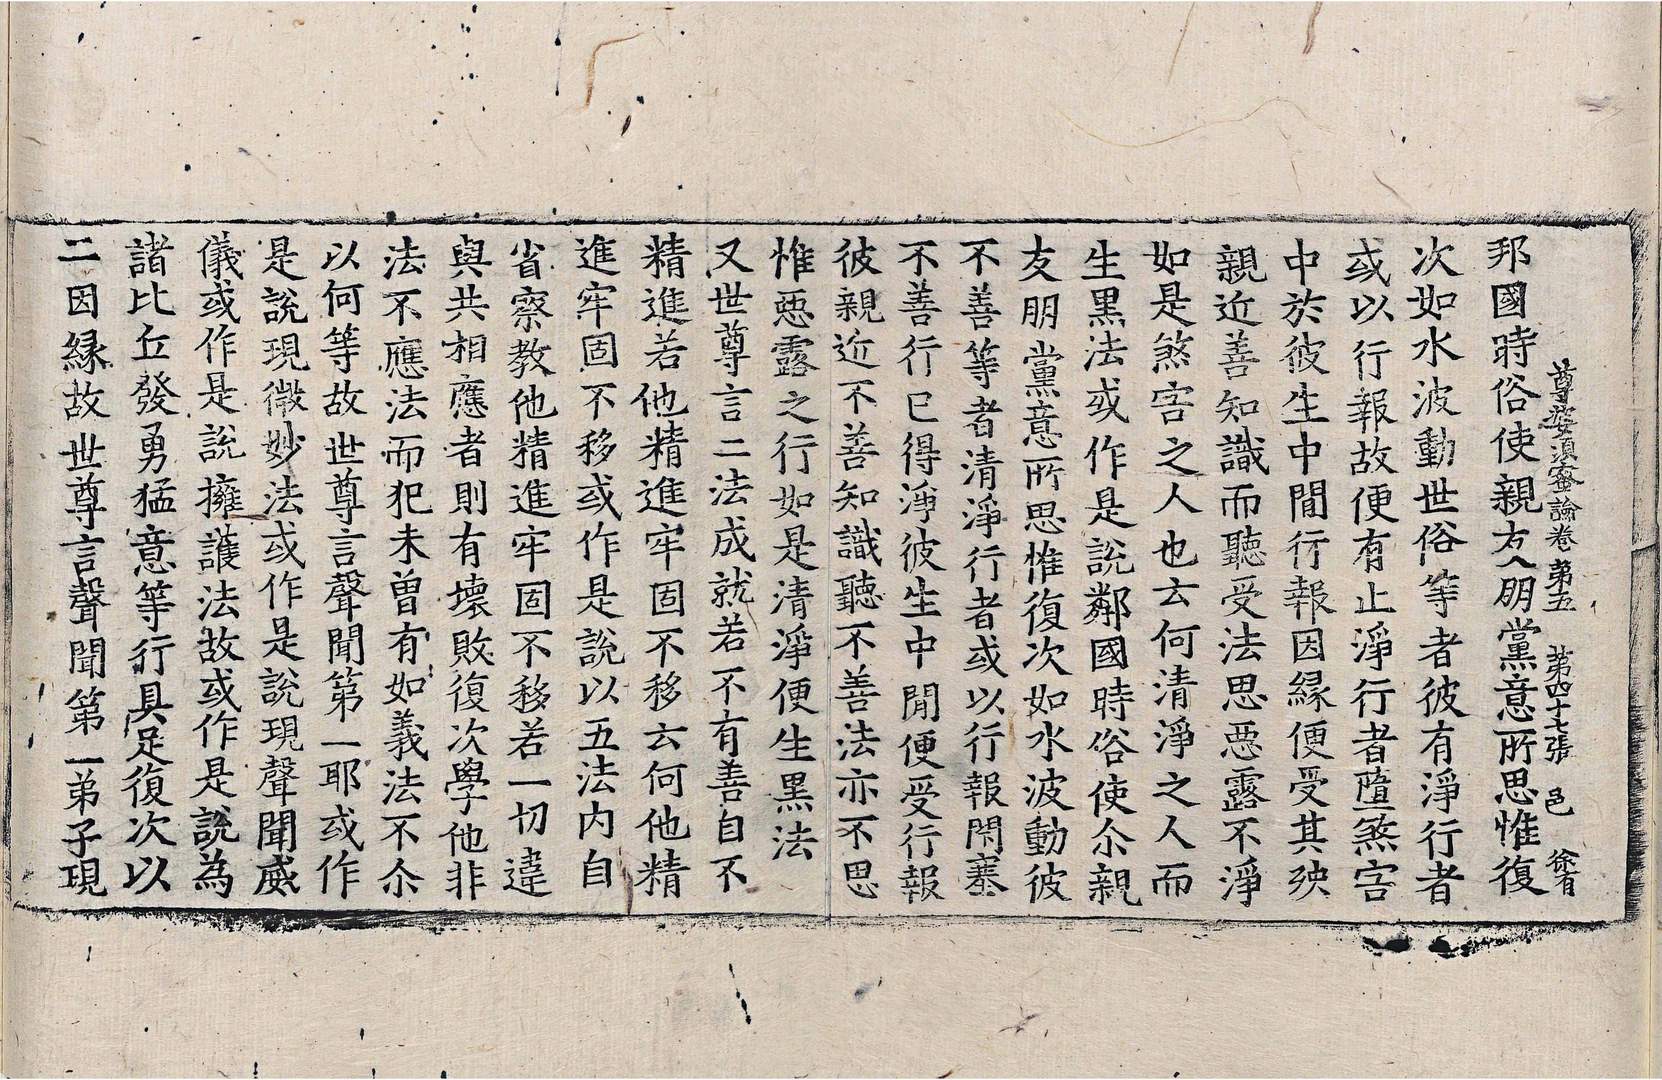 尊婆須蜜論卷第五 第四十七張 邑 徐有
邦國時俗使親友人朋黨意所思惟復
次如水波動世俗等者彼有淨行者
或以行報故便有止淨行者墮煞害
中於彼生中間行報因緣便受其殃
親近善知識而聽受法思惡露不淨
如是煞害之人也云何清淨之人而
生黑法或作是說鄰國時俗使尒親
友朋黨意所思惟復次如水波動彼
不善等者清淨行者或以行報閇塞
不善行已得淨彼生中間便受行報
彼親近不善知識聽不善法亦不思
惟惡露之行如是清淨便生黑法
又世尊言二法成就若不有善自不
精進若他精進牢固不移云何他精
進牢固不移或作是說以五法內自
省察教他精進牢固不移若一切違
與共相應者則有壞敗復次學他非
法不應法而犯未曾有如義法不尒
以何等故世尊言聲聞第一耶或作
是說現微妙法或作是說現聲聞威
儀或作是說擁護法故或作是說為
諸比丘發勇猛意等行具足復次以
二因緣故世尊言聲聞第一弟子現